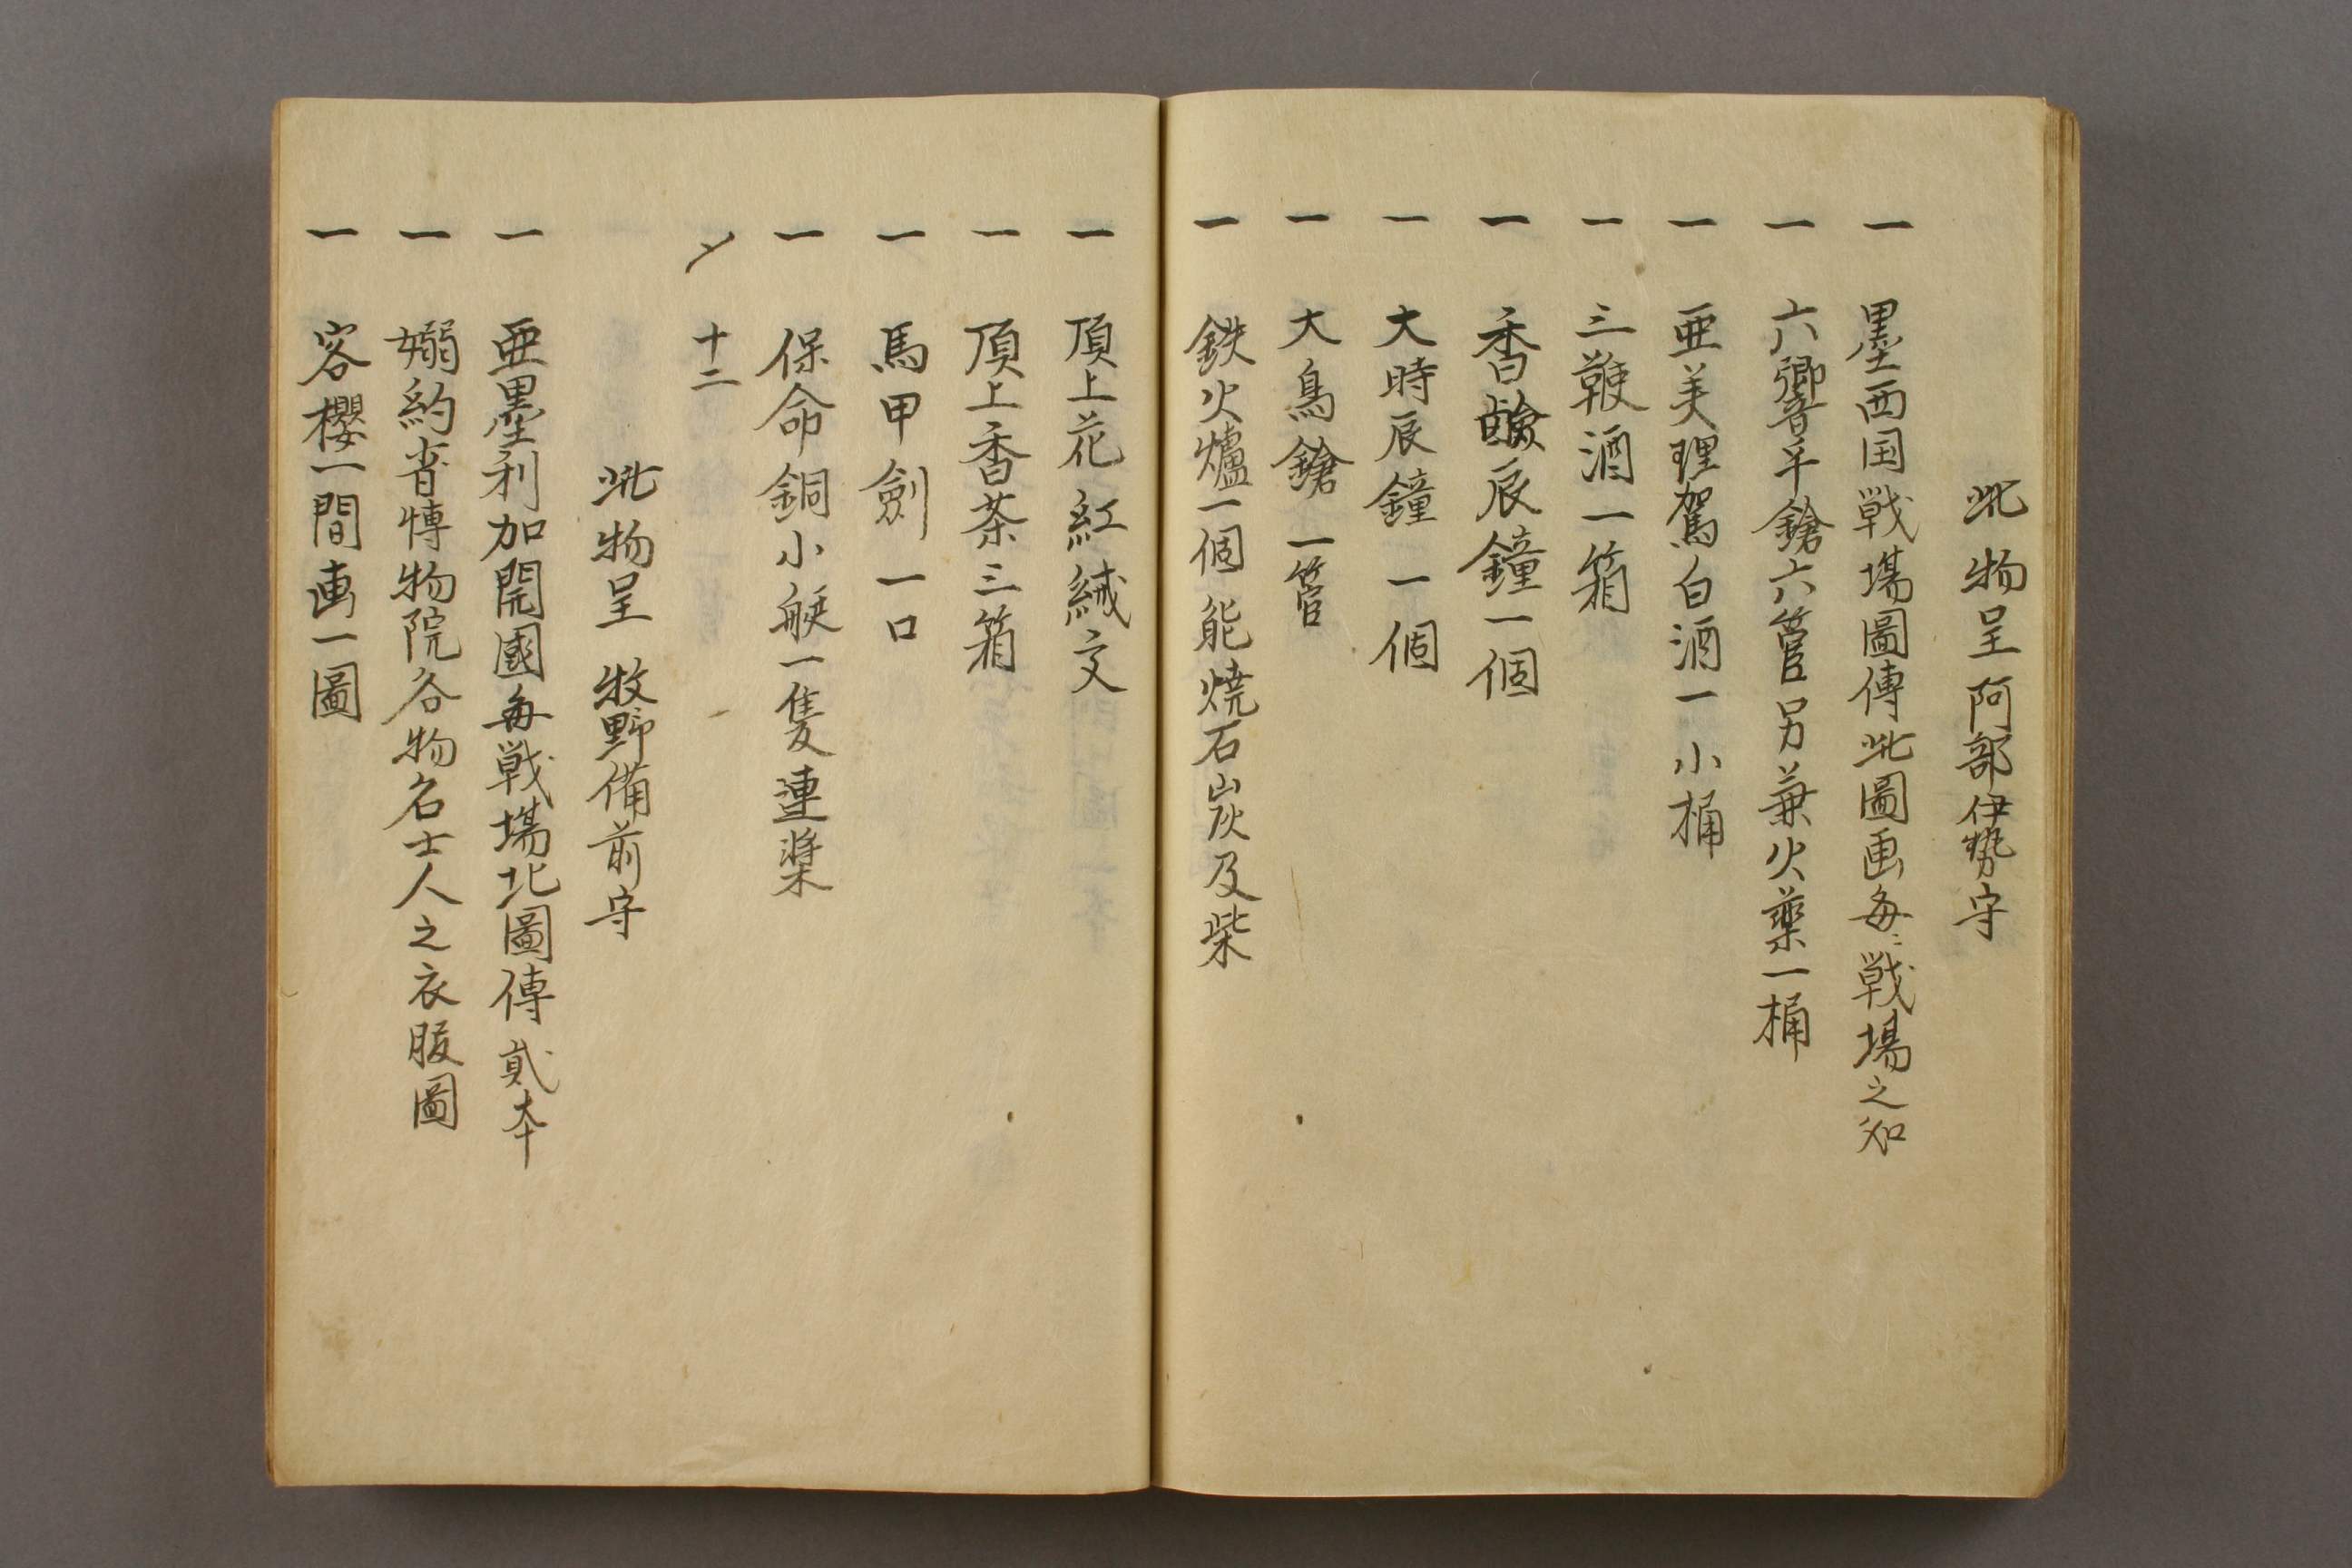 此物呈阿部伊勢守
一 墨西国戦場圖傳此圖画毎〻戦場之知
一 六響手鎗六管另兼火藥一桶
一 亜美理駕白酒一小桶
一 三鞭酒一箱
一 香鹼辰鐘一個
一 大時辰鐘一個
一 大鳥鎗一管
一 鉄火爐一個能焼石炭及柴
一 頂上花紅絨文
一 頂上香茶三箱
一 馬甲劍一口
一 保命銅小艇一隻連槳
〆 十二
此物呈 牧野備前守
一 亜墨利加開國毎戦場北圖傳貳本
一 嫋約省博物院各物名士人之衣服圖
一 客櫻一間画一圖